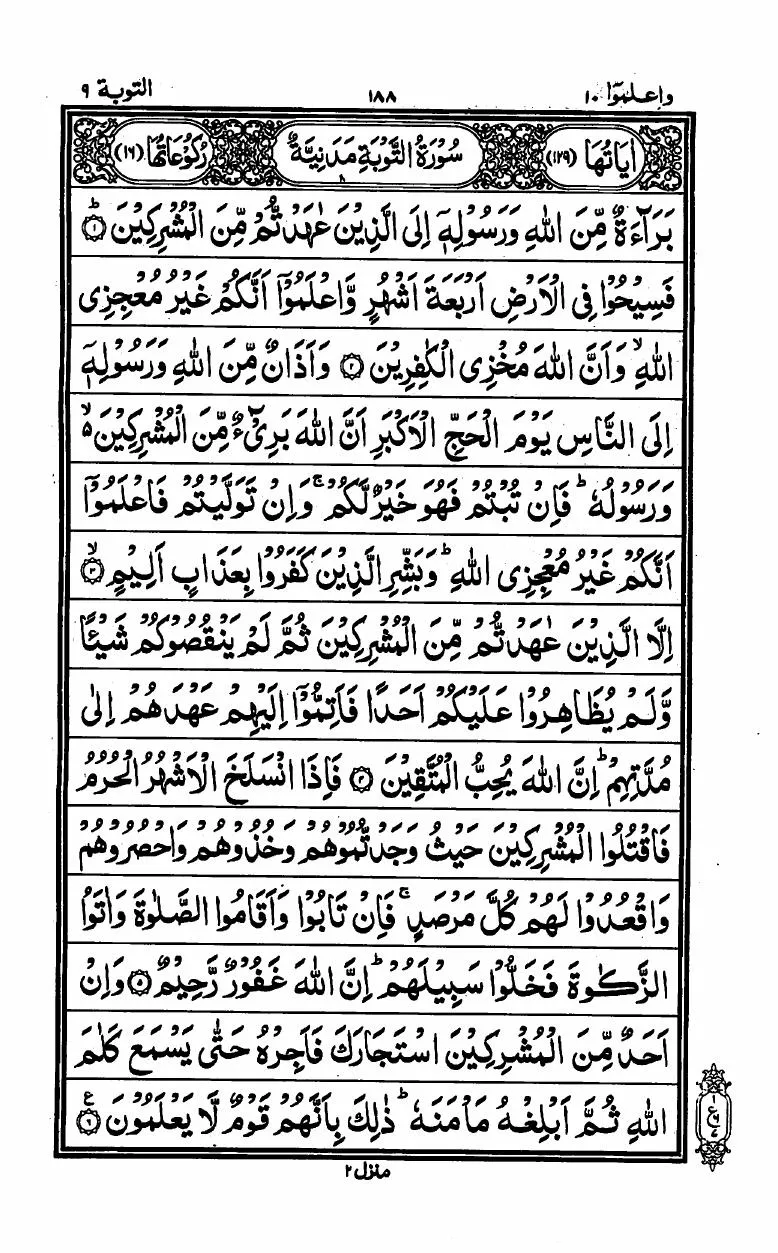 واعلموٓا ١٠ ١٨٨ التوبة ٩
اٰيَاتُهَا (١٢٩) سُوْرَةُ التَّوْبَةِ مَدَنِيَّةٌ رُكُوْعَاتُهَا (١٦)
بَرَآءَةٌ مِّنَ اللّٰهِ وَرَسُوْلِهٖٓ اِلَى الَّذِيْنَ عٰهَدْتُّمْ مِّنَ الْمُشْرِكِيْنَ ؕ ۝١
فَسِيْحُوْا فِى الْاَرْضِ اَرْبَعَةَ اَشْهُرٍ وَّاعْلَمُوْٓا اَنَّكُمْ غَيْرُ مُعْجِزِى
اللّٰهِ ۙ وَاَنَّ اللّٰهَ مُخْزِى الْكٰفِرِيْنَ ۝٢ وَاَذَانٌ مِّنَ اللّٰهِ وَرَسُوْلِهٖٓ
اِلَى النَّاسِ يَوْمَ الْحَجِّ الْاَكْبَرِ اَنَّ اللّٰهَ بَرِىْٓءٌ مِّنَ الْمُشْرِكِيْنَ ۙ۵
وَرَسُوْلُهٗ ؕ فَاِنْ تُبْتُمْ فَهُوَ خَيْرٌ لَّكُمْ ۚ وَاِنْ تَوَلَّيْتُمْ فَاعْلَمُوْٓا
اَنَّكُمْ غَيْرُ مُعْجِزِى اللّٰهِ ؕ وَبَشِّرِ الَّذِيْنَ كَفَرُوْا بِعَذَابٍ اَلِيْمٍ ۙ ۝٣
اِلَّا الَّذِيْنَ عٰهَدْتُّمْ مِّنَ الْمُشْرِكِيْنَ ثُمَّ لَمْ يَنْقُصُوْكُمْ شَيْـًٔا
وَّلَمْ يُظَاهِرُوْا عَلَيْكُمْ اَحَدًا فَاَتِمُّوْٓا اِلَيْهِمْ عَهْدَهُمْ اِلٰى
مُدَّتِهِمْ ؕ اِنَّ اللّٰهَ يُحِبُّ الْمُتَّقِيْنَ ۝٤ فَاِذَا انْسَلَخَ الْاَشْهُرُ الْحُرُمُ
فَاقْتُلُوا الْمُشْرِكِيْنَ حَيْثُ وَجَدْتُّمُوْهُمْ وَخُذُوْهُمْ وَاحْصُرُوْهُمْ
وَاقْعُدُوْا لَهُمْ كُلَّ مَرْصَدٍ ۚ فَاِنْ تَابُوْا وَاَقَامُوا الصَّلٰوةَ وَاٰتَوُا
الزَّكٰوةَ فَخَلُّوْا سَبِيْلَهُمْ ؕ اِنَّ اللّٰهَ غَفُوْرٌ رَّحِيْمٌ ۝٥ وَاِنْ
اَحَدٌ مِّنَ الْمُشْرِكِيْنَ اسْتَجَارَكَ فَاَجِرْهُ حَتّٰى يَسْمَعَ كَلٰمَ
اللّٰهِ ثُمَّ اَبْلِغْهُ مَاْمَنَهٗ ؕ ذٰلِكَ بِاَنَّهُمْ قَوْمٌ لَّا يَعْلَمُوْنَ ۝٦ ع
١
ع
٦
٧
منزل ٢